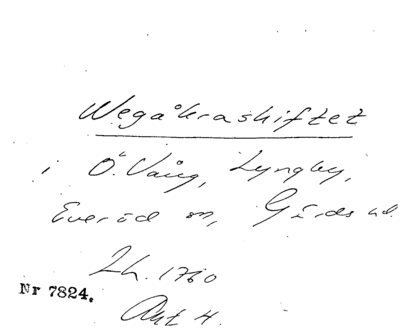 Wegåkraskiftet
i Ö. Vång, Lyngby,
Everöd sn, Gärds hd.
Lh. 1760
Nr 7824.
Akt 4.